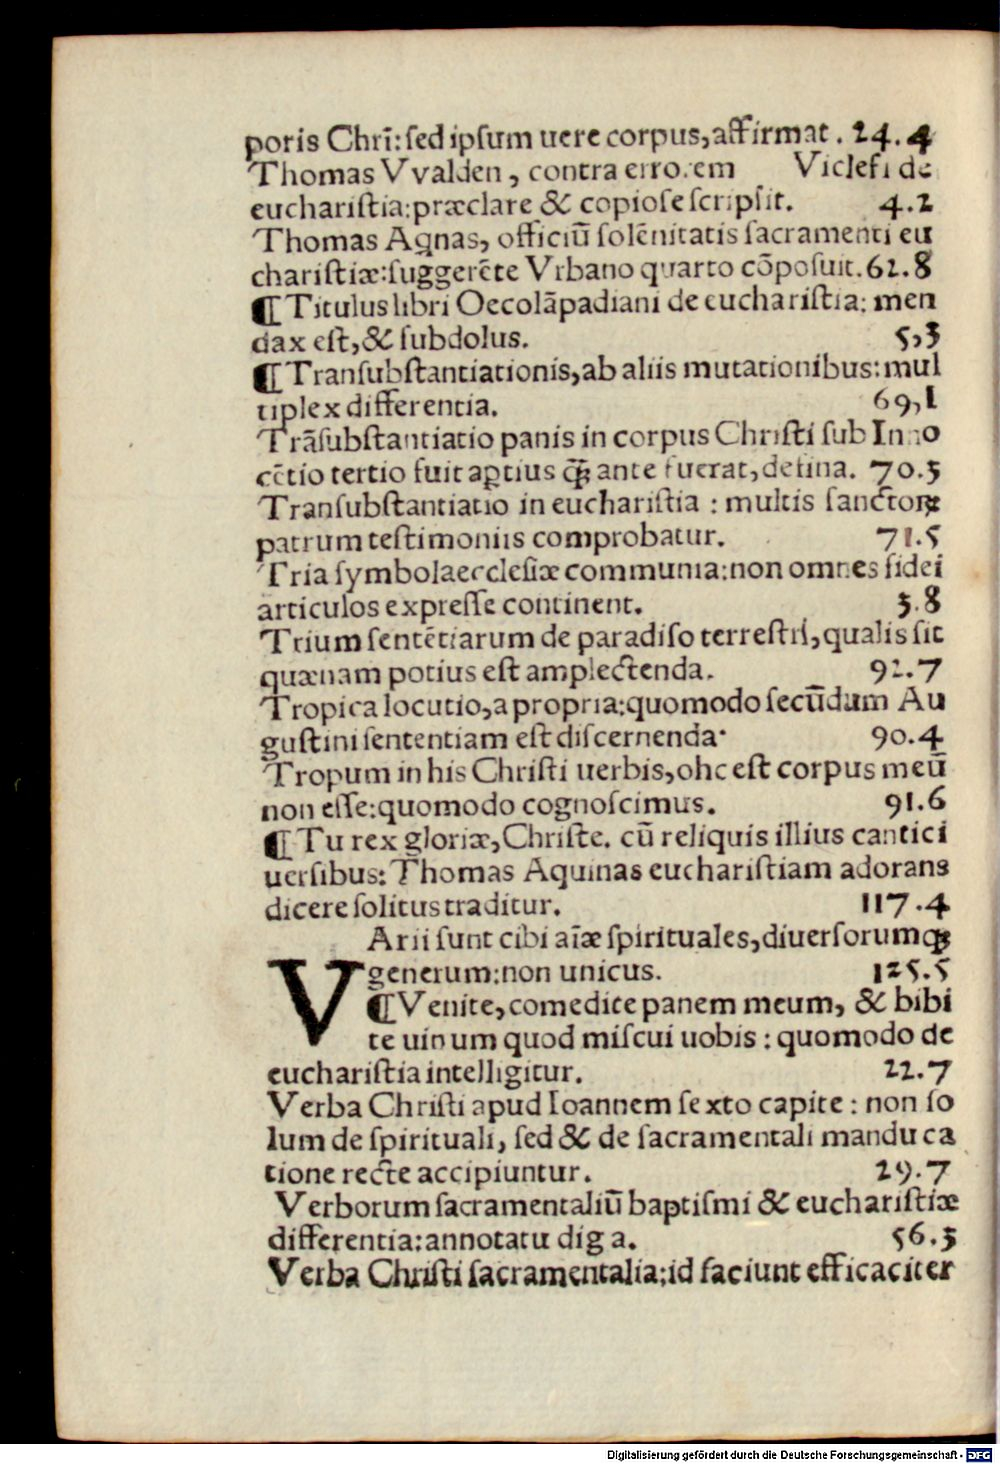 poris Chrī: sed ipsum uere corpus, affirmat . 24.4
Thomas Vvalden , contra errorem Viclefi de
eucharistia: præclare & copiose scripsit. 4.2
Thomas Aqnas, officiū solēnitatis sacramenti eu
charistiæ: suggerēte Vrbano quarto cōposuit. 62.8
¶ Titulus libri Oecolāpadiani de eucharistia: men
dax est, & subdolus. 5,3
¶ Transubstantiationis, ab aliis mutationibus: mul
tiplex differentia. 69,1
Trāsubstantiatio panis in corpus Christi sub Inno
cētio tertio fuit aptius q̄ꝫ ante fuerat, defina. 70.5
Transubstantiatio in eucharistia : multis sanctoꝝ
patrum testimoniis comprobatur. 71.5
Tria symbola ecclesiæ communia: non omnes fidei
articulos expresse continent. 3.8
Trium sentētiarum de paradiso terrestri, qualis sit
quænam potius est amplectenda. 92.7
Tropica locutio, a propria: quomodo secūdum Au
gustini sententiam est discernenda· 90.4
Tropum in his Christi uerbis, ohc est corpus meū
non esse: quomodo cognoscimus. 91.6
¶ Tu rex gloriæ, Christe. cū reliquis illius cantici
uersibus: Thomas Aquinas eucharistiam adorans
dicere solitus traditur. 117.4
VArii sunt cibi aīæ spirituales, diuersorumqꝫ
generum: non unicus. 125.5
¶ Venite, comedite panem meum, & bibi
te uinum quod miscui uobis : quomodo de
eucharistia intelligitur. 22.7
Verba Christi apud Ioannem sexto capite : non so
lum de spirituali, sed & de sacramentali manduca
tione recte accipiuntur. 29.7
Verborum sacramentaliū baptismi & eucharistiæ
differentia: annotatu dig a. 56.3
Verba Christi sacramentalia: id faciunt efficaciter
Digitalisierung gefördert durch die Deutsche Forschungsgemeinschaft - DFG